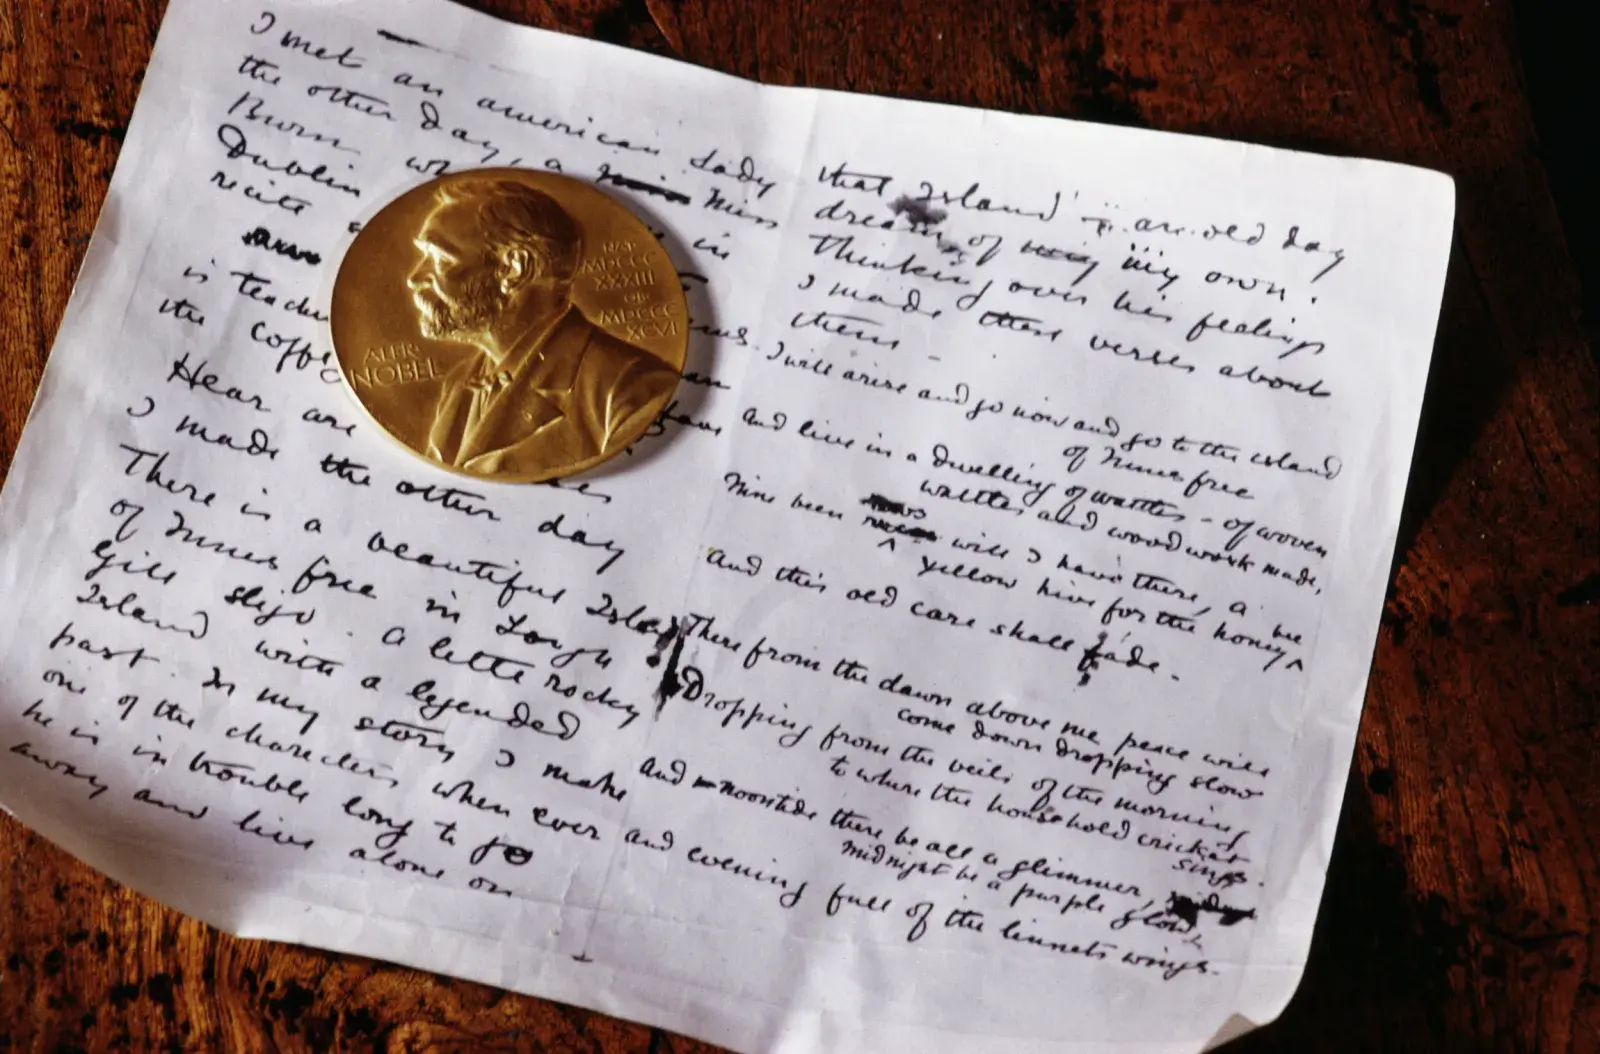 I met an american Lady
the other day, a Miss
Burn
Dublin in
recite
is teachi
the coffe an
Hear are have
I made the other day
There is a beautiful Island
of Innis free in Lough
Gill Sligo. A little rocky
Island with a legended
past. In my story I make
one of the charecters when ever
he is in trouble long to go
away and live alone on
ALFR·
NOBEL
NAT·
MDCCC
XXXIII
OB·
MDCCC
XCVI
that Island — an old day
dream of my my own.
Thinking over his feelings
I made these verses about
them —
I will arise and go now and go to the island
of Innis free
And live in a dwelling of wattles – of woven
wattles and wood work made,
Nine bean rows will I have there, a
yellow hive for the honey bee
And this old care shall fade.
There from the dawn above me peace will
come down dropping slow
Dropping from the veils of the morning
to where the household cricket
sings.
And noontide there be all a glimmer,
midnight be a purple glow
and evening full of the linnets wings.